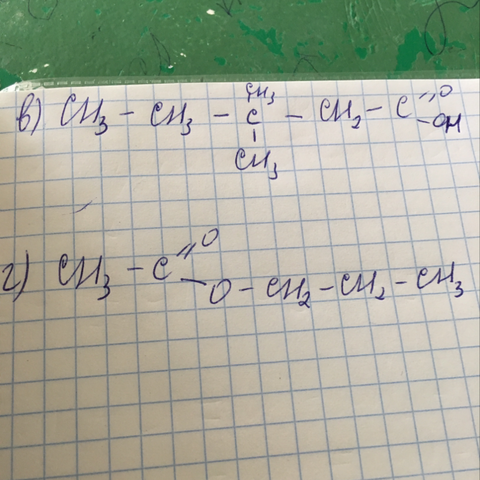 CH3
в) CH3 - CH3 - C - CH2 - C =O -OH
CH3
г) CH3 - C =O - O - CH2 - CH2 - CH3